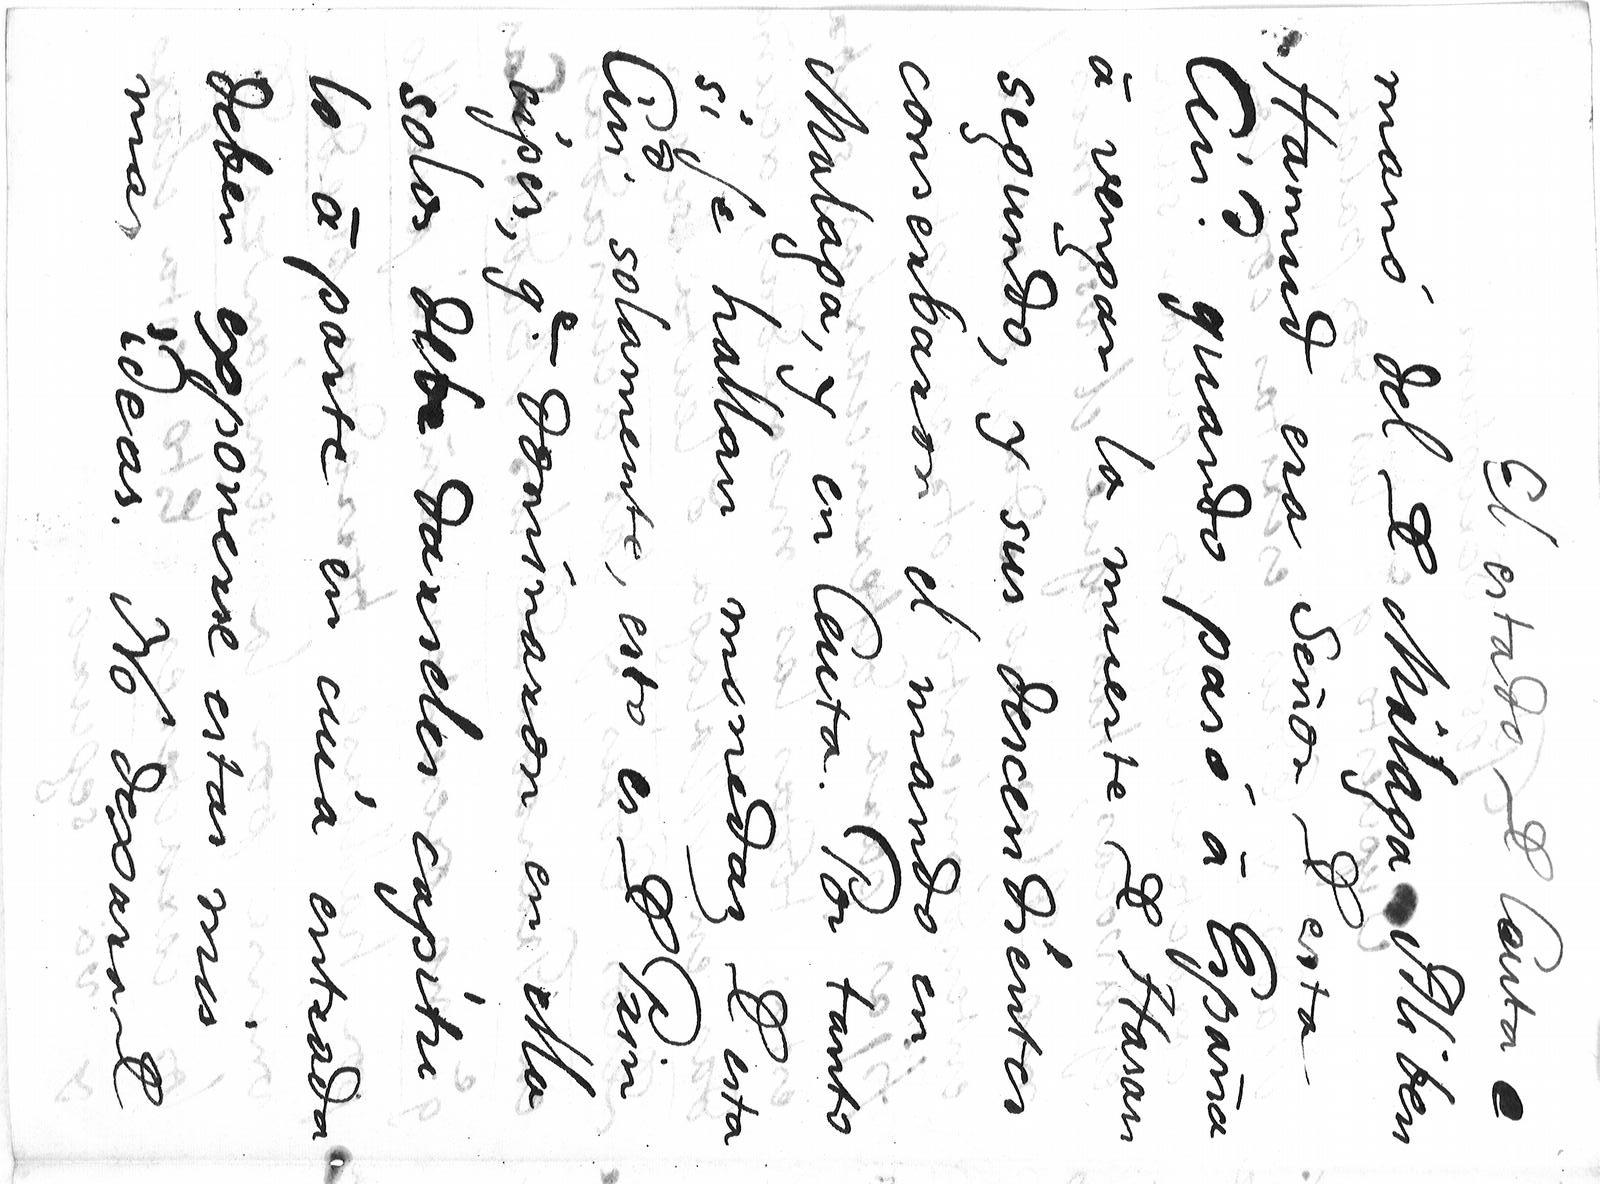 El estado de Ceuta
manó del de Málaga Ali ben
Hamud era Señor de esta
Ciu.d quando pasó à España
à vengar la muerte de Hasan
segundo, y sus descendientes
conserbaron el mando en
Malaga, y en Ceuta. Por tanto
si se hallan monedas de esta
Ciu.d solamente, esto es de Prin
cipes, q.e dominaron en ella
solos debe darseles capitu
lo à parte en cuia entrada
deben exponerse estas mis
mas ideas. No dexaron de